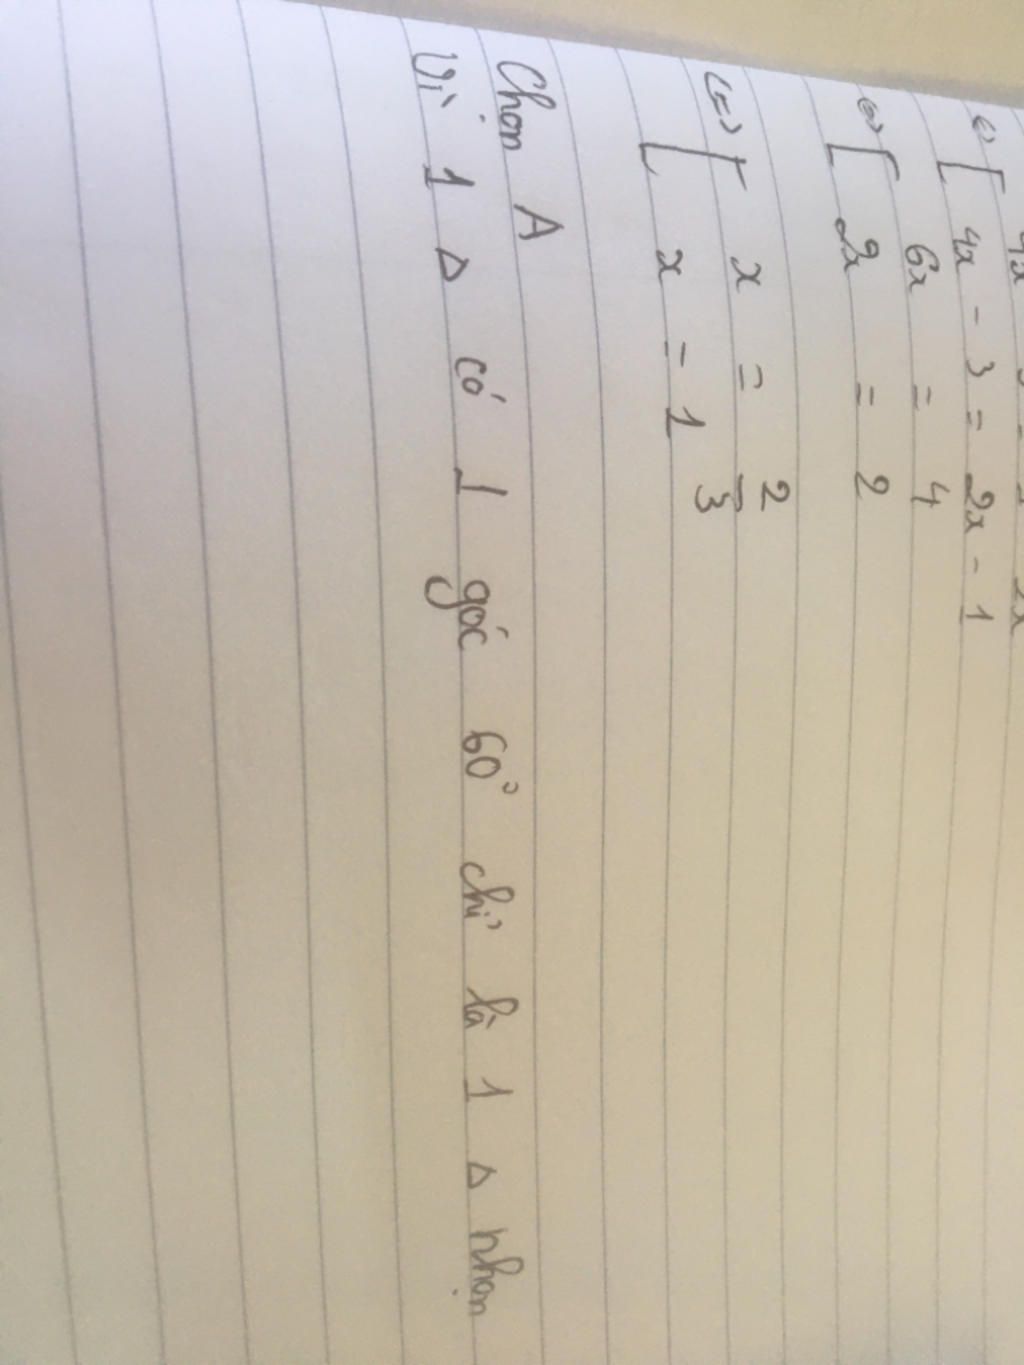 (=) [ 4x - 3 = 2x - 1
6x = 4
(=) [ 2x = 2
(=) [ x = 2/3
x = 1
Chọn A
Vì 1 Δ có 1 góc 60° chỉ là 1 Δ nhọn